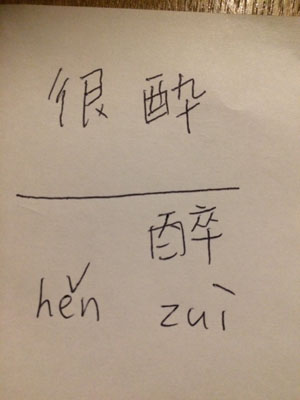 很 酔
醉
hěn zuì